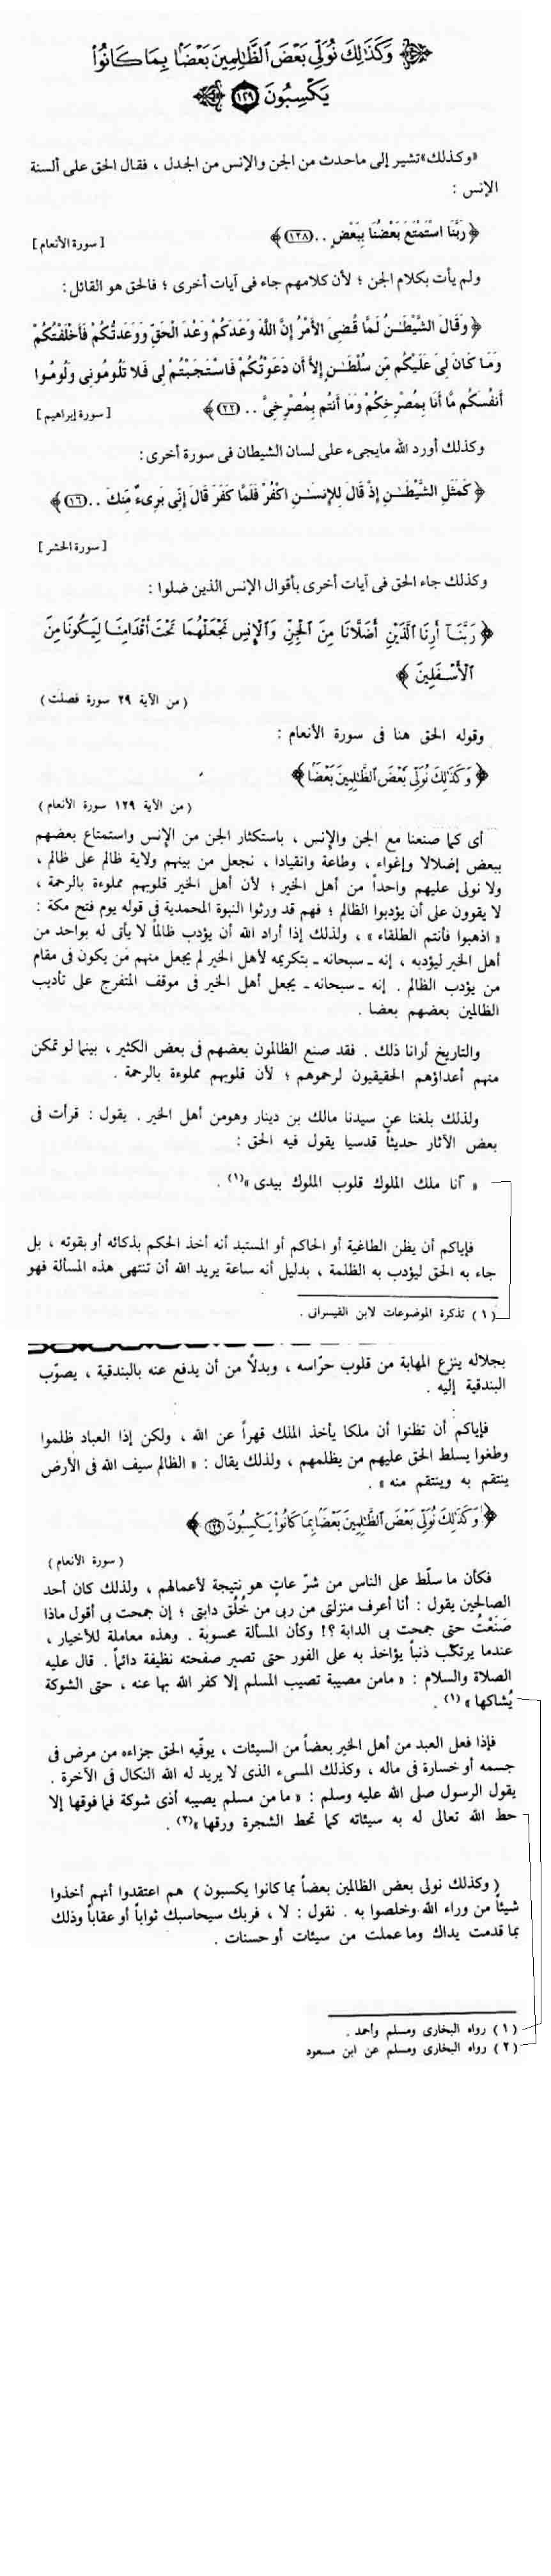 وَكَذَٰلِكَ نُوَلِّى بَعْضَ ٱلظَّٰلِمِينَ بَعْضًۢا بِمَا كَانُوا۟
يَكْسِبُونَ ١٢٩
«وكذلك» تشير إلى ماحدث من الجن والإنس من الجدل ، فقال الحق على ألسنة
الإنس :
﴿ رَبَّنَا اسْتَمْتَعَ بَعْضُنَا بِبَعْضٍ .. (١٢٨) ﴾
[ سورة الأنعام ]
ولم يأت بكلام الجن ؛ لأن كلامهم جاء فى آيات أخرى ؛ فالحق هو القائل :
﴿ وَقَالَ الشَّيْطَـٰنُ لَمَّا قُضِىَ الأَمْرُ إِنَّ اللَّهَ وَعَدَكُمْ وَعْدَ الْحَقِّ وَوَعَدتُّكُمْ فَأَخْلَفْتُكُمْ
وَمَا كَانَ لِىَ عَلَيْكُم مِّن سُلْطَـٰنٍ إِلاَّ أَن دَعَوْتُكُمْ فَاسْتَجَبْتُمْ لِى فَلا تَلُومُونِى وَلُومُوا
أَنفُسَكُم مَّا أَنَا بِمُصْرِخِكُمْ وَمَا أَنتُم بِمُصْرِخِىَّ .. (٢٢) ﴾
[ سورة إبراهيم ]
وكذلك أورد الله مايجىء على لسان الشيطان فى سورة أخرى :
﴿ كَمَثَلِ الشَّيْطَـٰنِ إِذْ قَالَ لِلإِنسَـٰنِ اكْفُرْ فَلَمَّا كَفَرَ قَالَ إِنِّى بَرِىءٌ مِّنكَ .. (١٦) ﴾
[ سورة الحشر ]
وكذلك جاء الحق فى آيات أخرى بأقوال الإنس الذين ضلوا :
﴿ رَبَّنَآ أَرِنَا ٱلَّذَيْنِ أَضَلَّانَا مِنَ ٱلْجِنِّ وَٱلْإِنسِ نَجْعَلْهُمَا تَحْتَ أَقْدَامِنَا لِيَكُونَا مِنَ
ٱلْأَسْفَلِينَ ﴾
( من الآية ٢٩ سورة فصلت )
وقوله الحق هنا فى سورة الأنعام :
﴿ وَكَذَٰلِكَ نُوَلِّى بَعْضَ ٱلظَّٰلِمِينَ بَعْضًۢا ﴾
( من الآية ١٢٩ سورة الأنعام )
أى كما صنعنا مع الجن والإنس ، باستكثار الجن من الإنس واستمتاع بعضهم
ببعض إضلالا وإغواء ، وطاعة وانقيادا ، نجعل من بينهم ولاية ظالم على ظالم ،
ولا نولى عليهم واحداً من أهل الخير ؛ لأن أهل الخير قلوبهم مملوءة بالرحمة ،
لا يقوون على أن يؤدبوا الظالم ؛ فهم قد ورثوا النبوة المحمدية فى قوله يوم فتح مكة :
« اذهبوا فأنتم الطلقاء » ، ولذلك إذا أراد الله أن يؤدب ظالمًا لا يأتى له بواحد من
أهل الخير ليؤدبه ، إنه ـ سبحانه ـ بتكريمه لأهل الخير لم يجعل منهم من يكون فى مقام
من يؤدب الظالم . إنه ـ سبحانه ـ يجعل أهل الخير فى موقف المتفرج على تأديب
الظالمين بعضهم بعضا .
والتاريخ أرانا ذلك . فقد صنع الظالمون بعضهم فى بعض الكثير ، بينما لو تمكن
منهم أعداؤهم الحقيقيون لرحموهم ؛ لأن قلوبهم مملوءة بالرحمة .
ولذلك بلغنا عن سيدنا مالك بن دينار وهومن أهل الخير . يقول : قرأت فى
بعض الآثار حديثاً قدسيا يقول فيه الحق :
« أنا ملك الملوك قلوب الملوك بيدى »(١) .
فإياكم أن يظن الطاغية أو الحاكم أو المستبد أنه أخذ الحكم بذكائه أو بقوته ، بل
جاء به الحق ليؤدب به الظلمة ، بدليل أنه ساعة يريد الله أن تنتهى هذه المسألة فهو
( ١ ) تذكرة الموضوعات لابن القيسرانى .
بجلاله ينزع المهابة من قلوب حرّاسه ، وبدلاً من أن يدفع عنه بالبندقية ، يصوّب
البندقية إليه .
فإياكم أن تظنوا أن ملكا يأخذ الملك قهراً عن الله ، ولكن إذا العباد ظلموا
وطغوا يسلط الحق عليهم من يظلمهم ، ولذلك يقال : « الظالم سيف الله فى الأرض
ينتقم به وينتقم منه » .
﴿ وَكَذَٰلِكَ نُوَلِّى بَعْضَ ٱلظَّٰلِمِينَ بَعْضًۢا بِمَا كَانُوا۟ يَكْسِبُونَ (١٢٩) ﴾
( سورة الأنعام )
فكأن ما سلّط على الناس من شرّ عاتٍ هو نتيجة لأعمالهم ، ولذلك كان أحد
الصالحين يقول : أنا أعرف منزلتى من ربى من خُلُق دابتى ؛ إن جمحت بى أقول ماذا
صَنَعْتُ حتى جمحت بى الدابة ؟! وكأن المسألة محسوبة . وهذه معاملة للأخيار ،
عندما يرتكب ذنباً يؤاخذ به على الفور حتى تصير صفحته نظيفة دائماً . قال عليه
الصلاة والسلام : « مامن مصيبة تصيب المسلم إلا كفر الله بها عنه ، حتى الشوكة
يُشاكها » (١) .
فإذا فعل العبد من أهل الخير بعضاً من السيئات ، يوفّيه الحق جزاءه من مرض فى
جسمه أو خسارة فى ماله ، وكذلك المسىء الذى لا يريد له الله النكال فى الآخرة .
يقول الرسول صلى الله عليه وسلم : « ما من مسلم يصيبه أذى شوكة فما فوقها إلا
حط الله تعالى له به سيئاته كما تحط الشجرة ورقها »(٢) .
( وكذلك نولى بعض الظالمين بعضاً بما كانوا يكسبون ) هم اعتقدوا أنهم أخذوا
شيئاً من وراء الله وخلصوا به . نقول : لا ، فربك سيحاسبك ثواباً أو عقاباً وذلك
بما قدمت يداك وما عملت من سيئات أو حسنات .
( ١ ) رواه البخارى ومسلم وأحمد .
( ٢ ) رواه البخارى ومسلم عن ابن مسعود